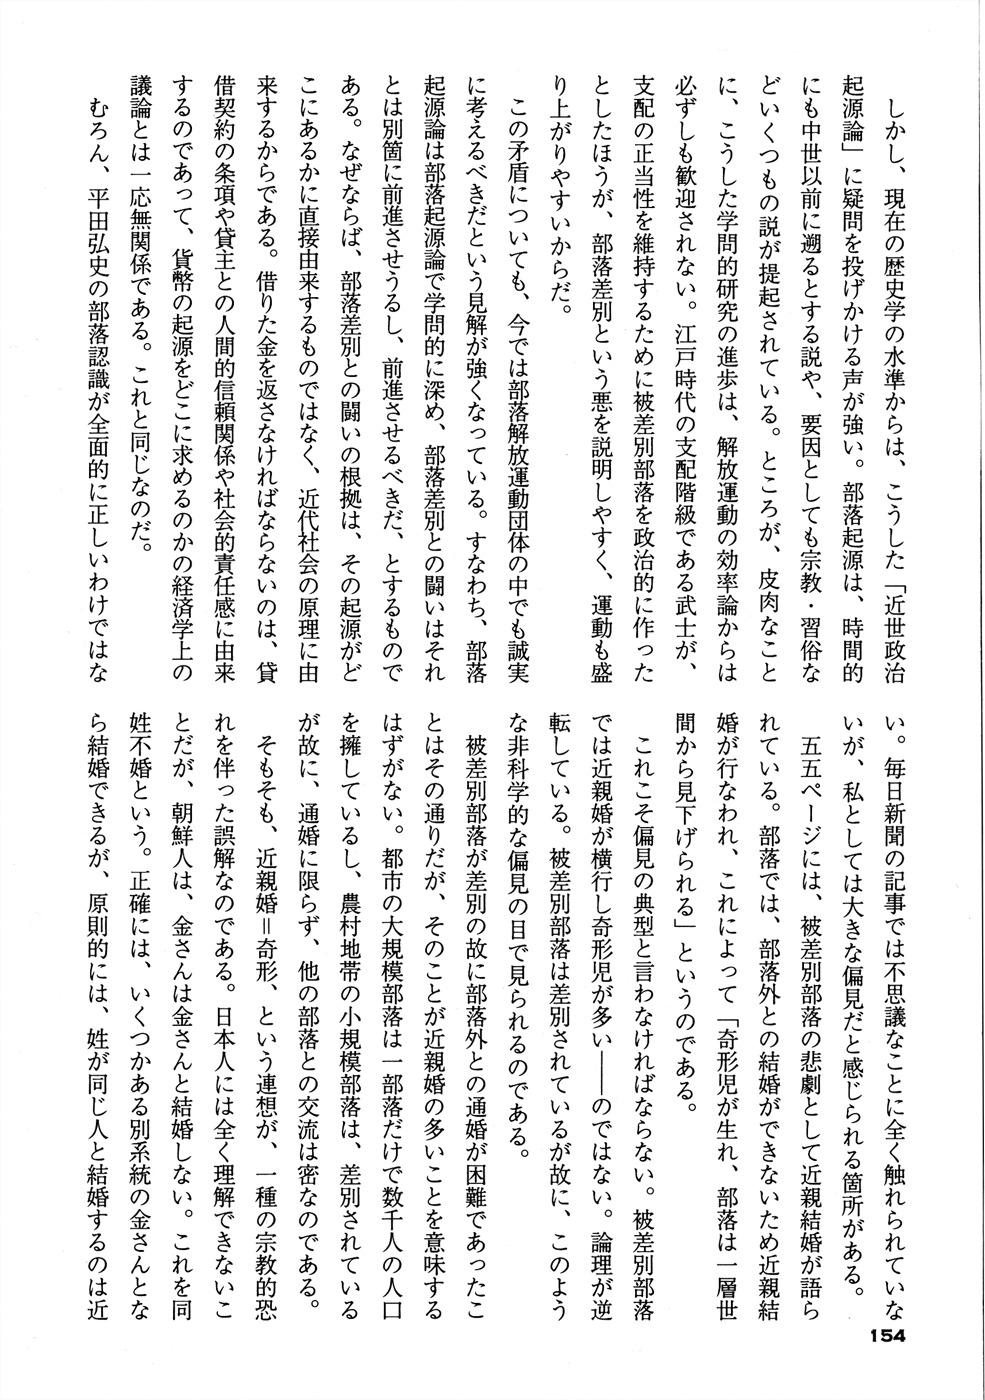 しかし、現在の歴史学の水準からは、こうした「近世政治
起源論」に疑問を投げかける声が強い。部落起源は、時間的
にも中世以前に遡るとする説や、要因としても宗教・習俗な
どいくつもの説が提起されている。ところが、皮肉なこと
に、こうした学問的研究の進歩は、解放運動の効率論からは
必ずしも歓迎されない。江戸時代の支配階級である武士が、
支配の正当性を維持するために被差別部落を政治的に作った
としたほうが、部落差別という悪を説明しやすく、運動も盛
り上がりやすいからだ。
この矛盾についても、今では部落解放運動団体の中でも誠実
に考えるべきだという見解が強くなっている。すなわち、部落
起源論は部落起源論で学問的に深め、部落差別との闘いはそれ
とは別箇に前進させうるし、前進させるべきだ、とするもので
ある。なぜならば、部落差別との闘いの根拠は、その起源がど
こにあるかに直接由来するものではなく、近代社会の原理に由
来するからである。借りた金を返さなければならないのは、貸
借契約の条項や貸主との人間的信頼関係や社会的責任感に由来
するのであって、貨幣の起源をどこに求めるのかの経済学上の
議論とは一応無関係である。これと同じなのだ。
むろん、平田弘史の部落認識が全面的に正しいわけではな
い。毎日新聞の記事では不思議なことに全く触れられていな
いが、私としては大きな偏見だと感じられる箇所がある。
五五ページには、被差別部落の悲劇として近親結婚が語ら
れている。部落では、部落外との結婚ができないため近親結
婚が行なわれ、これによって「奇形児が生れ、部落は一層世
間から見下げられる」というのである。
これこそ偏見の典型と言わなければならない。被差別部落
では近親婚が横行し奇形児が多い――のではない。論理が逆
転している。被差別部落は差別されているが故に、このよう
な非科学的な偏見の目で見られるのである。
被差別部落が差別の故に部落外との通婚が困難であったこ
とはその通りだが、そのことが近親婚の多いことを意味する
はずがない。都市の大規模部落は一部落だけで数千人の人口
を擁しているし、農村地帯の小規模部落は、差別されている
が故に、通婚に限らず、他の部落との交流は密なのである。
そもそも、近親婚＝奇形、という連想が、一種の宗教的恐
れを伴った誤解なのである。日本人には全く理解できないこ
とだが、朝鮮人は、金さんは金さんと結婚しない。これを同
姓不婚という。正確には、いくつかある別系統の金さんとな
ら結婚できるが、原則的には、姓が同じ人と結婚するのは近
154